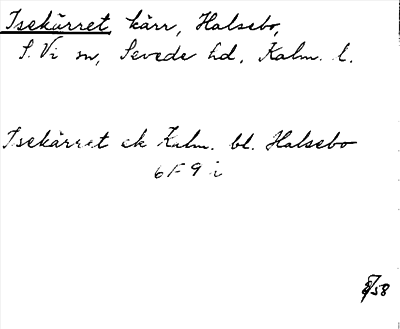 Isekärret, kärr, Halsebo,
S. Vi sn, Sevede hd, Kalm. l.
Isekärret ek Kalm. bl. Halsebo
6F 9 i
58